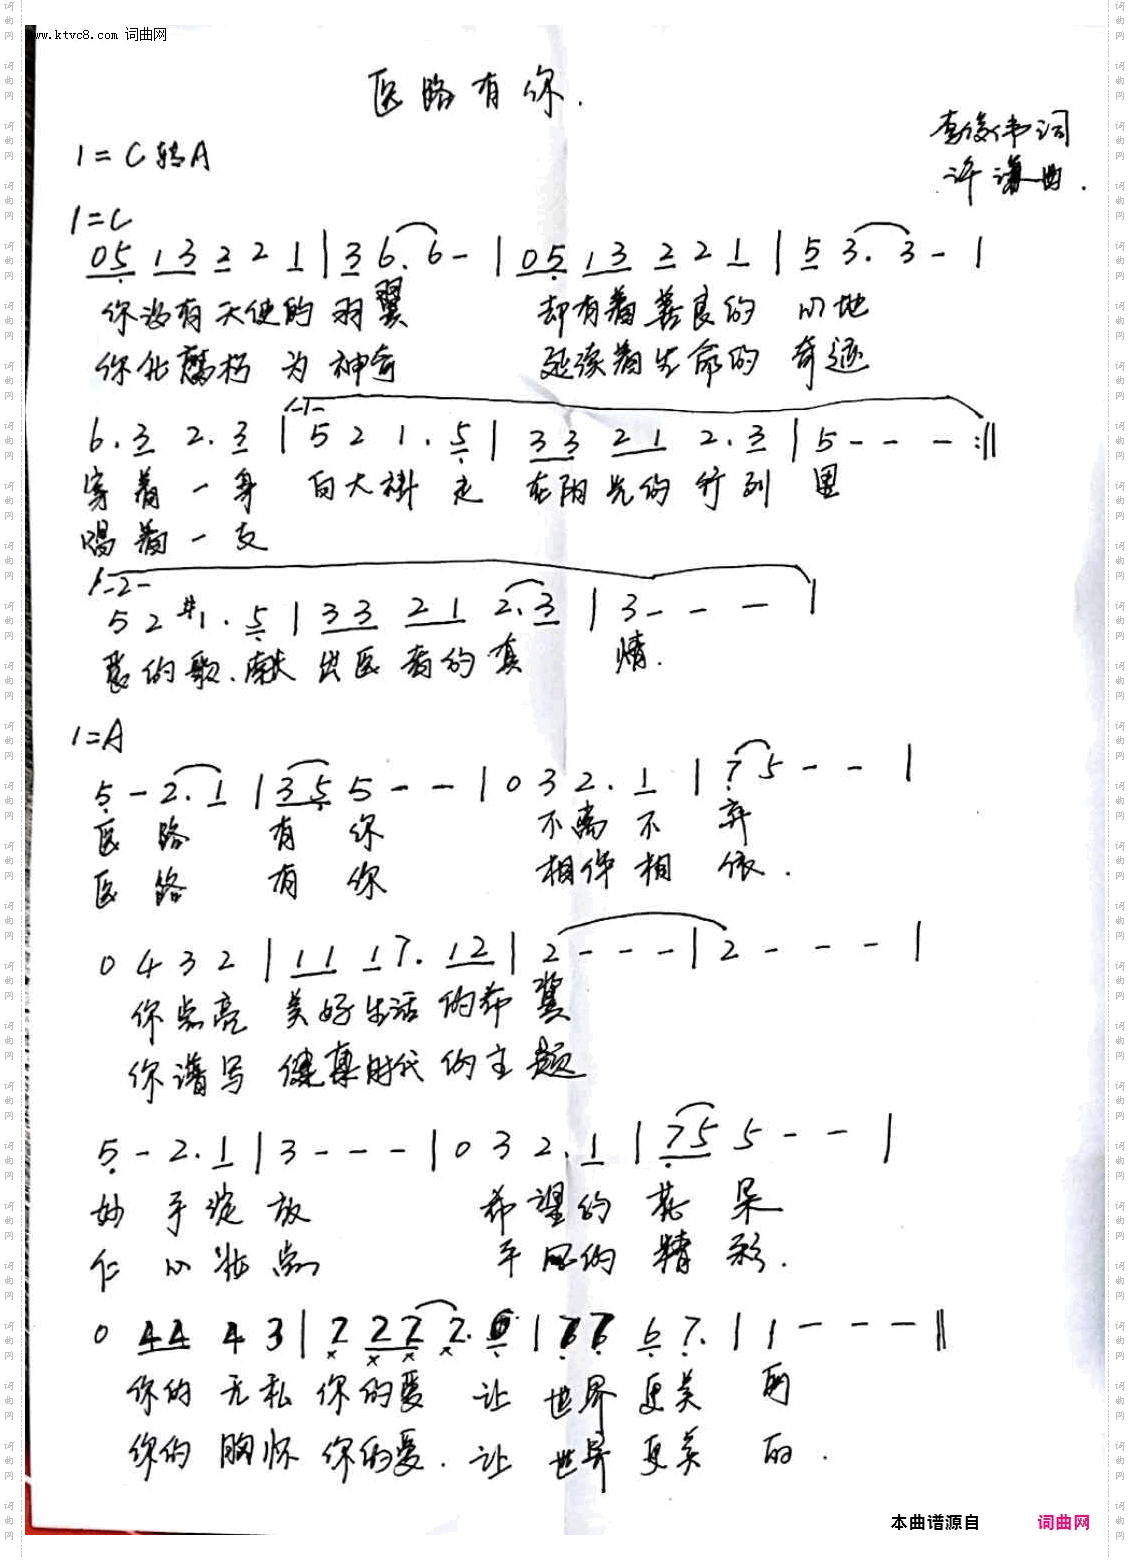 www.ktvc8.com 词曲网
医路有你.
1=C转A
李俊伟词
许谦曲.
1=C
05 13 2 2 1 | 3 6. 6 - | 05 13 2 2 1 | 5 3. 3 - |
你没有天使的羽翼 却有着善良的心地
你化腐朽为神奇 延续着生命的奇迹
6. 3 2. 3 | 5 2 1. 5 | 33 21 2. 3 | 5 - - - :||
穿着一身 白大褂 走在阳光的行列里
唱着一支
-1-
-2-
5 2 #1. 5 | 33 21 2. 3 | 3 - - - |
的歌.献出医者的真情.
1=A
5 - 2. 1 | 35 5 - - | 0 3 2. 1 | 7 5 - - |
医路有你 不离不弃
医路有你 相伴相依.
0 4 3 2 | 11 17. 12 | 2 - - - | 2 - - - |
你点亮 美好生活的希冀
你谱写 健康时代的主题
5 - 2. 1 | 3 - - - | 0 3 2. 1 | 75 5 - - |
妙手绽放 希望的花朵
仁心装点 平凡的精彩.
0 44 4 3 | 2 22 2. 6 | 7 6 6 7. | 1 - - - ||
你的无私你的爱 让世界更美丽
你的胸怀你的爱.让世界更美丽.
本曲谱源自 词曲网